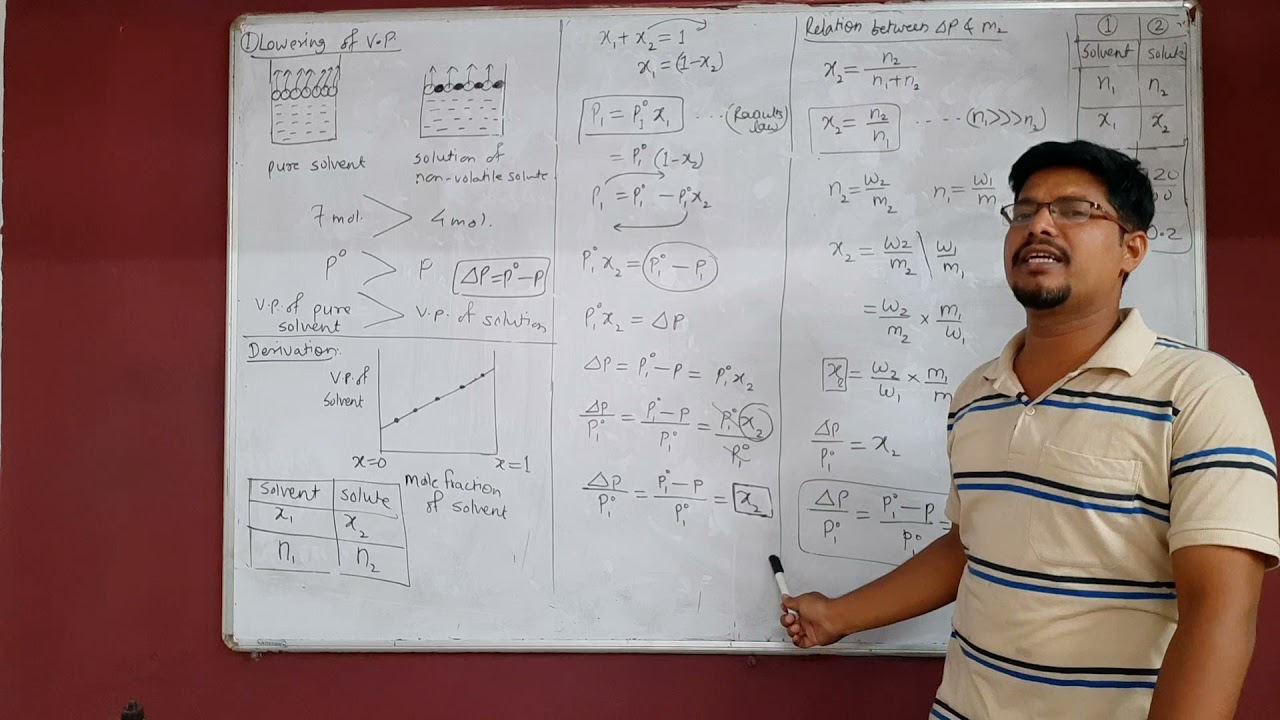 ① Lowering of V.P.
pure solvent
solution of
non-volatile solute
7 mol. > 4 mol.
P° > P
ΔP = P° - P
V.P. of pure solvent > V.P. of solution
Derivation.
V.P. of
solvent
x=0
x=1
Mole fraction
of solvent
solvent | solute
x₁ | x₂
n₁ | n₂
x₁ + x₂ = 1
x₁ = (1-x₂)
P₁ = P₁° x₁ .... (Raoults law)
= P₁° (1-x₂)
P₁ = P₁° - P₁°x₂
P₁° x₂ = P₁° - P₁
P₁° x₂ = ΔP
ΔP = P₁° - P = P₁° x₂
ΔP/P₁° = P₁° - P/P₁° = P₁° x₂/P₁°
ΔP/P₁° = P₁° - P/P₁° = x₂
Relation between ΔP & m₂
x₂ = n₂/n₁+n₂
x₂ = n₂/n₁ ..... (n₁>>>n₂)
n₂ = w₂/m₂ n₁ = w₁/m
x₂ = w₂/m₂ \ w₁/m₁
= w₂/m₂ × m₁/w₁
x₂ = w₂/w₁ × m₁/m
ΔP/P₁° = x₂
ΔP/P₁° = P₁° - P/P₁° =
① | ②
solvent | solute
n₁ | n₂
x₁ | x₂
20
0.2